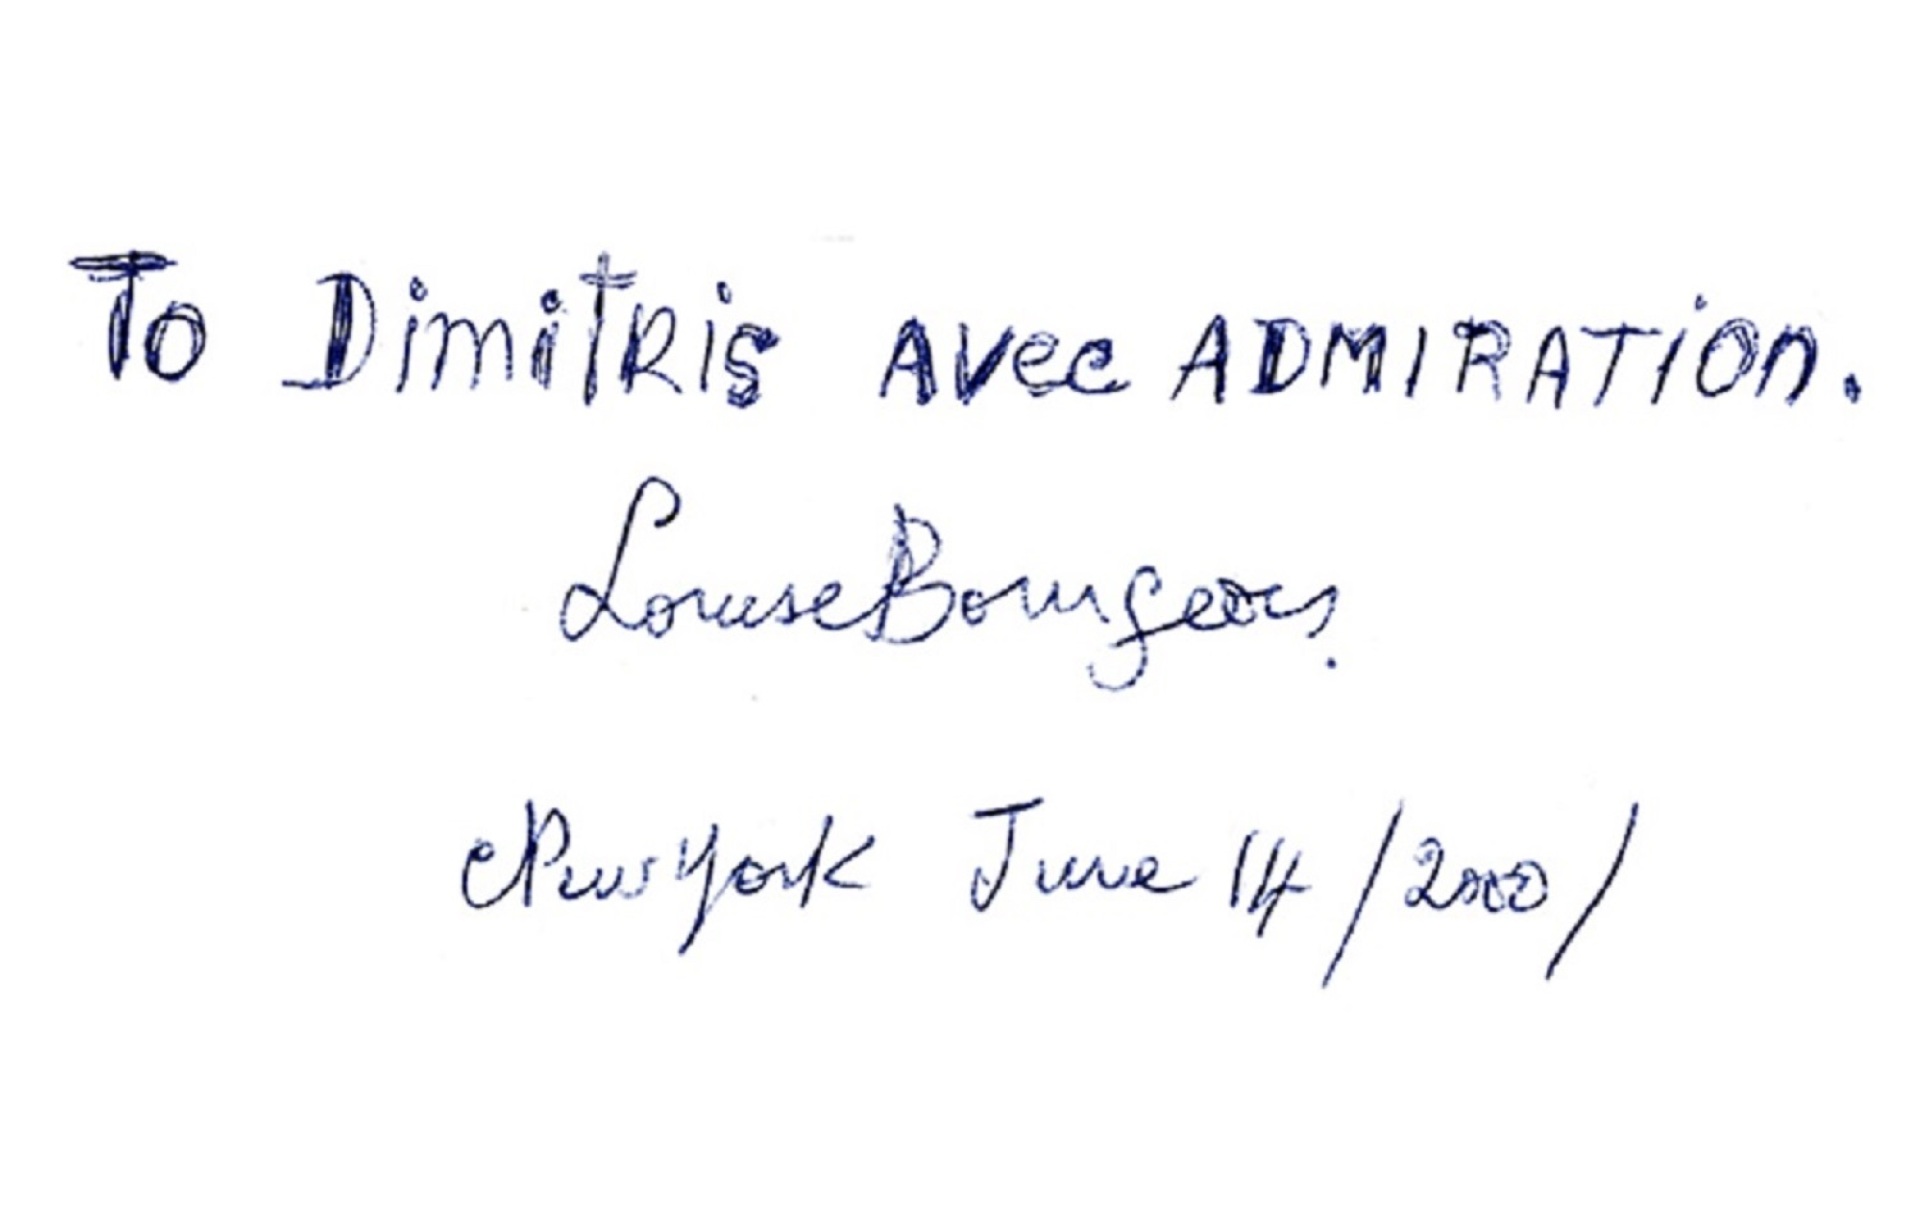 To DimitRis AVec ADMIRATion.
Louise Bourgeois.
New York June 14/2000/